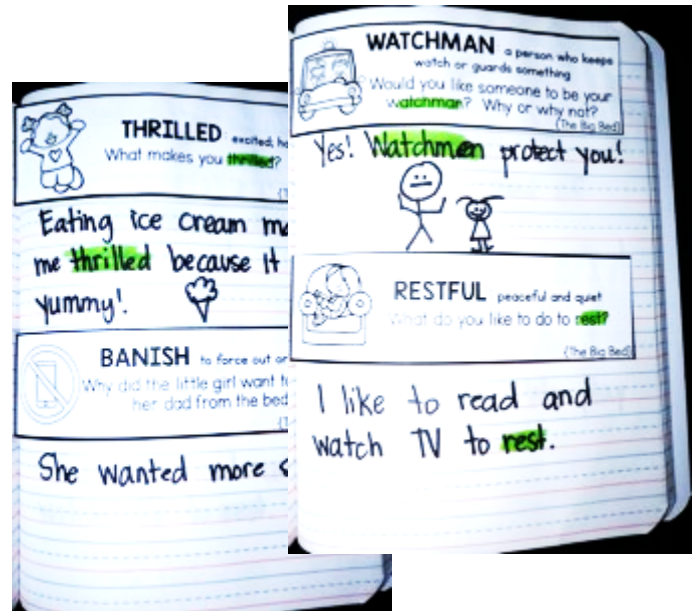 THRILLED excited, ha
What makes you thrilled?
Eating ice cream ma
me thrilled because it
yummy!
BANISH to force out or
Why did the little girl want to
her dad from the bed
She wanted more s
WATCHMAN a person who keeps
watch or guards something
Would you like someone to be your
watchman? Why or why not?
{The Big Bed}
Yes! Watchmen protect you!
RESTFUL peaceful and quiet
What do you like to do to rest?
{The Big Bed}
I like to read and
watch TV to rest.